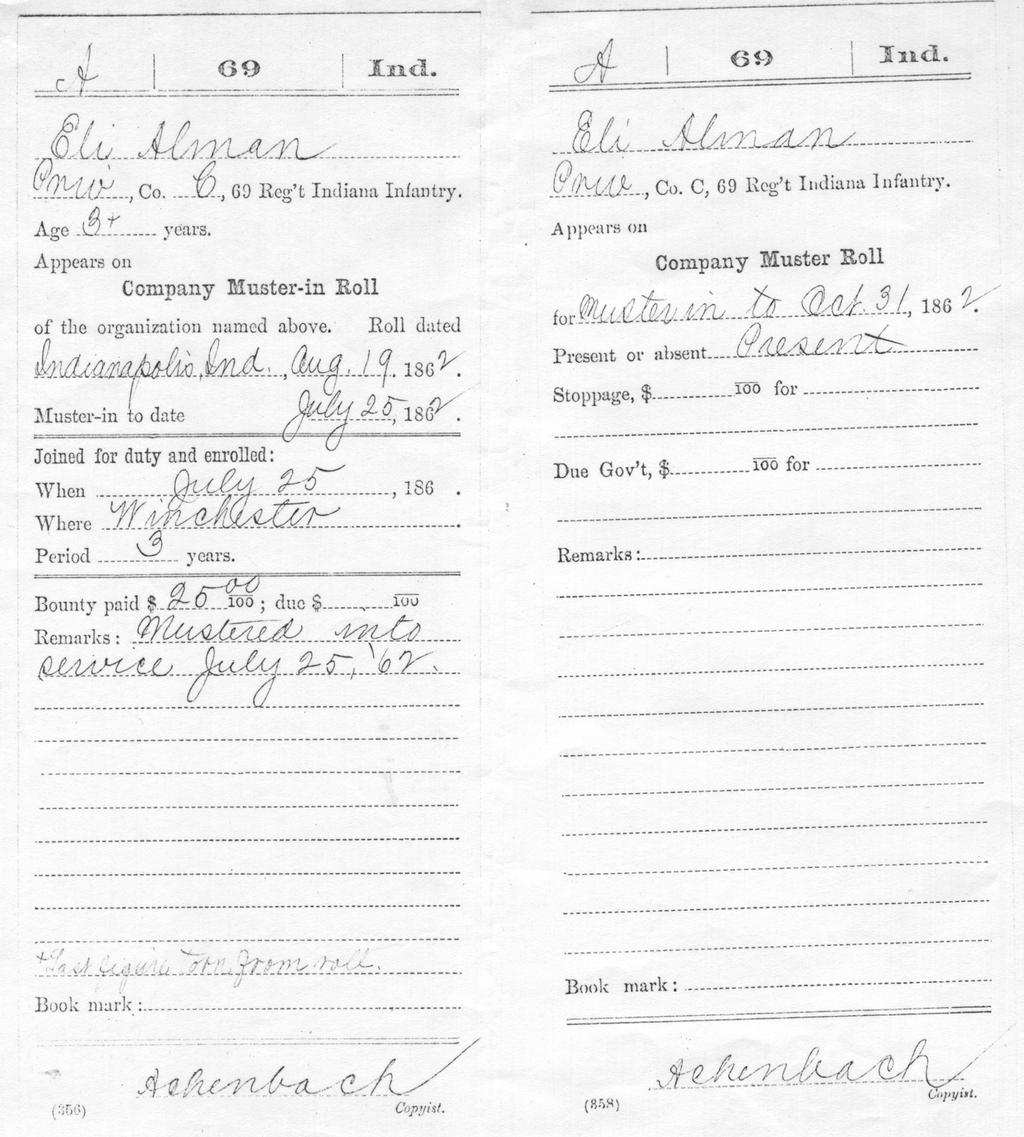 A | 69 | Ind.
Eli Alman
Priv, Co. C, 69 Reg't Indiana Infantry.
Age 3+ years.
Appears on
Company Muster-in Roll
of the organization named above. Roll dated
Indianapolis, Ind., Aug. 19, 1862.
Muster-in to date July 25, 1862.
Joined for duty and enrolled:
When July 25, 186 .
Where Winchester.
Period 3 years.
Bounty paid $ 25 00/100; due $ /100
Remarks: Mustered into
service July 25, '62.
+Last figure torn from roll.
Book mark:
Achenbach
(356) Copyist.
A | 69 | Ind.
Eli Alman
Priv, Co. C, 69 Reg't Indiana Infantry.
Appears on
Company Muster Roll
for Muster in to Oct. 31, 1862.
Present or absent Present
Stoppage, $ /100 for
Due Gov't, $ /100 for
Remarks:
Book mark:
Achenbach
(358) Copyist.